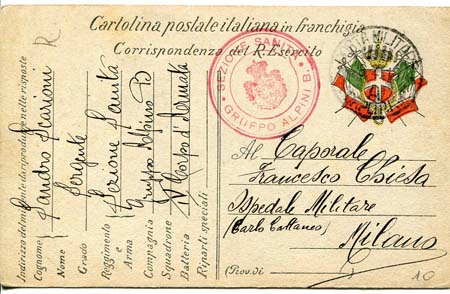 Cartolina postale italiana in franchigia
Corrispondenza del R. Esercito
R
SEZIONE SANITÀ
GRUPPO ALPINI B.
POSTA MILITARE
Indirizzo del mittente da riprodurre nelle risposte
Cognome
Nome
Grado
Reggimento
e
Arma
Compagnia
Squadrone
Batteria
Riparti speciali
Sandro
Sergente
Sezione Sanità
Gruppo Alpino B
Corpo d'Armata
Al Caporale
Francesco Chiesa
Ospedale Militare
(Carlo Cattaneo)
Milano
(Prov. di
10